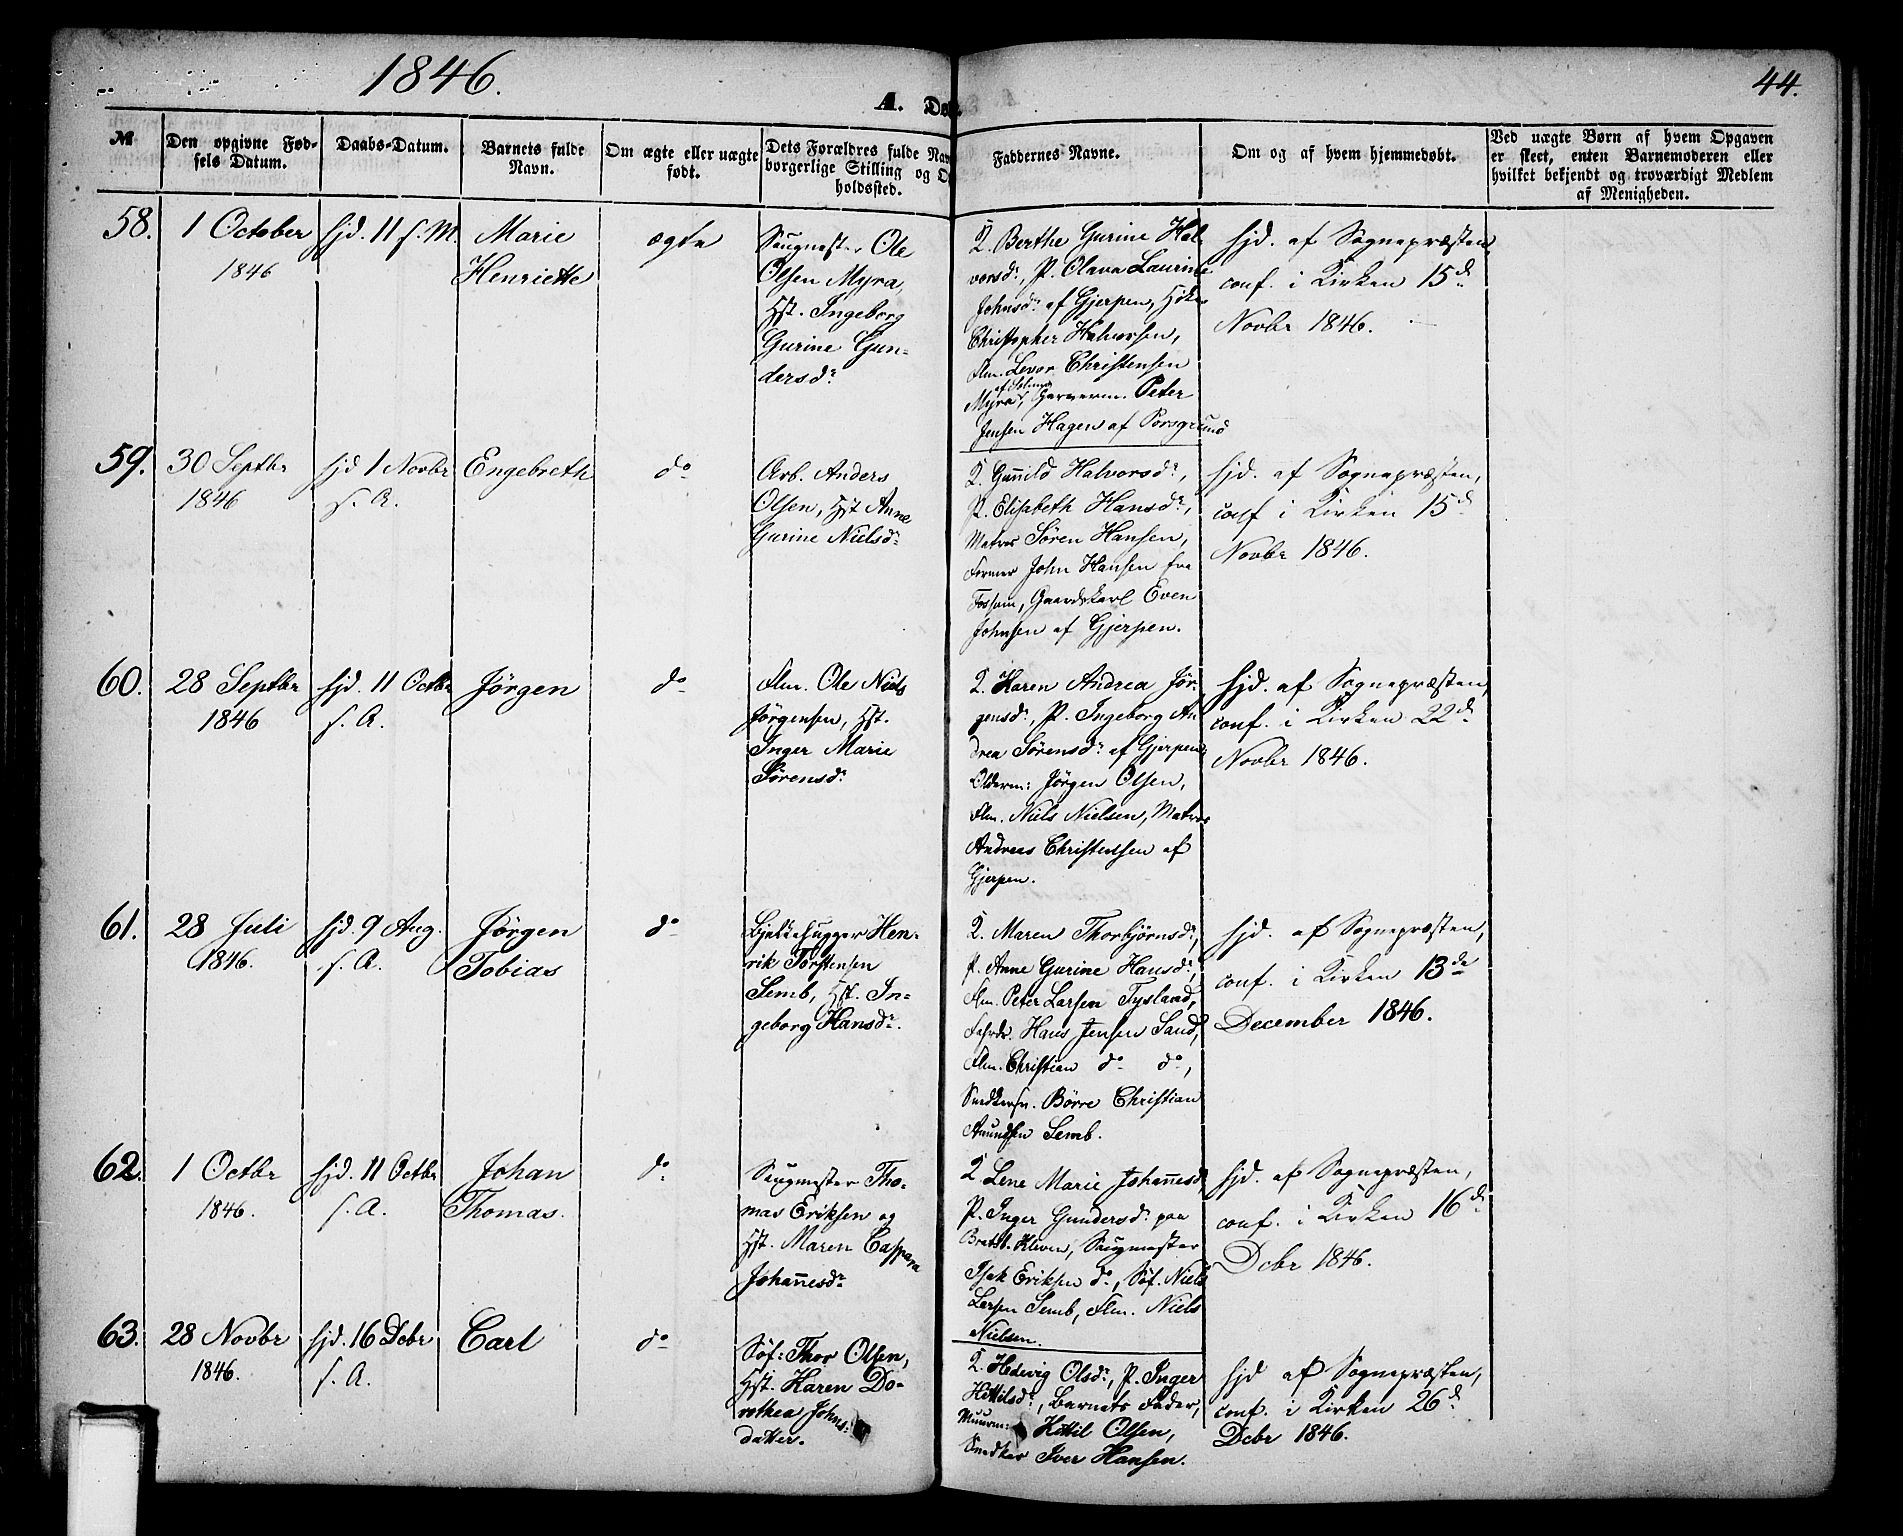 1846.
44.
A. Dø
№
Den opgivne Fød-
sels Datum.
Daabs-Datum.
Barnets fulde
Navn.
Om ægte eller uægte
født.
Dets Forældres fulde Nav
borgerlige Stilling og O
holdssted.
Faddernes Navne.
Om og af hvem hjemmedøbt.
Ved uægte Børn af hvem Opgaven
er skeet, enten Barnemoderen eller
hvilket bekjendt og troværdigt Medlem
af Menigheden.
58.
1 October
1846
hjd. 11 s. M.
Marie
Henriette
ægte
Saugmester Ole
Olsen Myra,
Hst. Ingeborg
Gurine Gun-
dersdr
Q. Berthe Gurine Hal-
vorsdr, P. Olava Laurine
Johnsdr af Gjerpen,
Christopher Halvorsen,
Flm. Levor Christensen
Myra, Peter
Jensen Hagen af Porsgrund
hjd. af Sognepræsten,
conf. i Kirken 15de
Novbr 1846.
59.
30 Septbr
1846
hjd 1 Novbr
s. A.
Engebreth
do
Arb. Anders
Olsen, Hst Anne
Gurine Nielsdr
Q. Gunild Halvorsdr,
P. Elisabeth Hansdr,
Matros Søren Hansen,
Former John Hansen fra
Fossum, Gaardskarl Even
Johnsen af Gjerpen.
hjd. af Sognepræsten,
conf i Kirken 15de
Novbr 1846.
60.
28 Septbr
1846
hjd. 11 Octbr
s. A.
Jørgen
do
Flm. Ole Niels
Jørgensen, Hst.
Inger Marie
Sørensdr
Q. Karen Andrea Jør-
gensdr, P. Ingeborg An-
drea Sørensdr af Gjerpen,
Olderm: Jørgen Olsen,
Flm. Niels Nielsen, Matros
Andreas Christensen af
Gjerpen.
hjd. af Sognepræsten,
conf. i Kirken 22de
Novbr 1846.
61.
28 Juli
1846.
hjd. 9 Aug.
s. A.
Jørgen
Tobias
do
Bjelkehugger Hen-
rik Torstensen
Semb, Hst. In-
geborg Hansdr.
Q. Maren Thorbjörnsdr,
P. Anne Gurine Hansdr,
Flm. Peter Larsen Tysland,
Hans Jensen Sand,
Flm. Christian do do,
Snedkersv. Børre Christian
Amundsen Semb.
hjd. af Sognepræsten,
conf. i Kirken 13de
December 1846.
62.
1 Octbr
1846.
hjd. 11 Octbr
s. A.
Johan
Thomas.
do
Saugmester Tho-
mas Eriksen og
Hst. Maren Caspara
Johannesdr
Q Lene Marie Johannesdr,
P. Inger Gundersdr paa
Bratsb. Kleven, Saugmester
Isak Eriksen do, Søf. Niels
Larsen Semb, Flm. Niels
Nielsen.
hjd. af Sognepræsten,
conf. i Kirken 16de
Dcbr 1846.
63.
28 Novbr
1846.
hjd. 16 Dcbr
s. A.
Carl
do
Søf: Thor Olsen,
Hst. Karen Do-
rothea Johns-
datter.
Q. Hedvig Olsdr, P. Inger
Kittilsdr, Barnets Fader,
Muurm: Kittil Olsen,
Snedker Iver Hansen.
hjd af Sognepræsten,
conf. i Kirken 26de
Dcbr 1846.